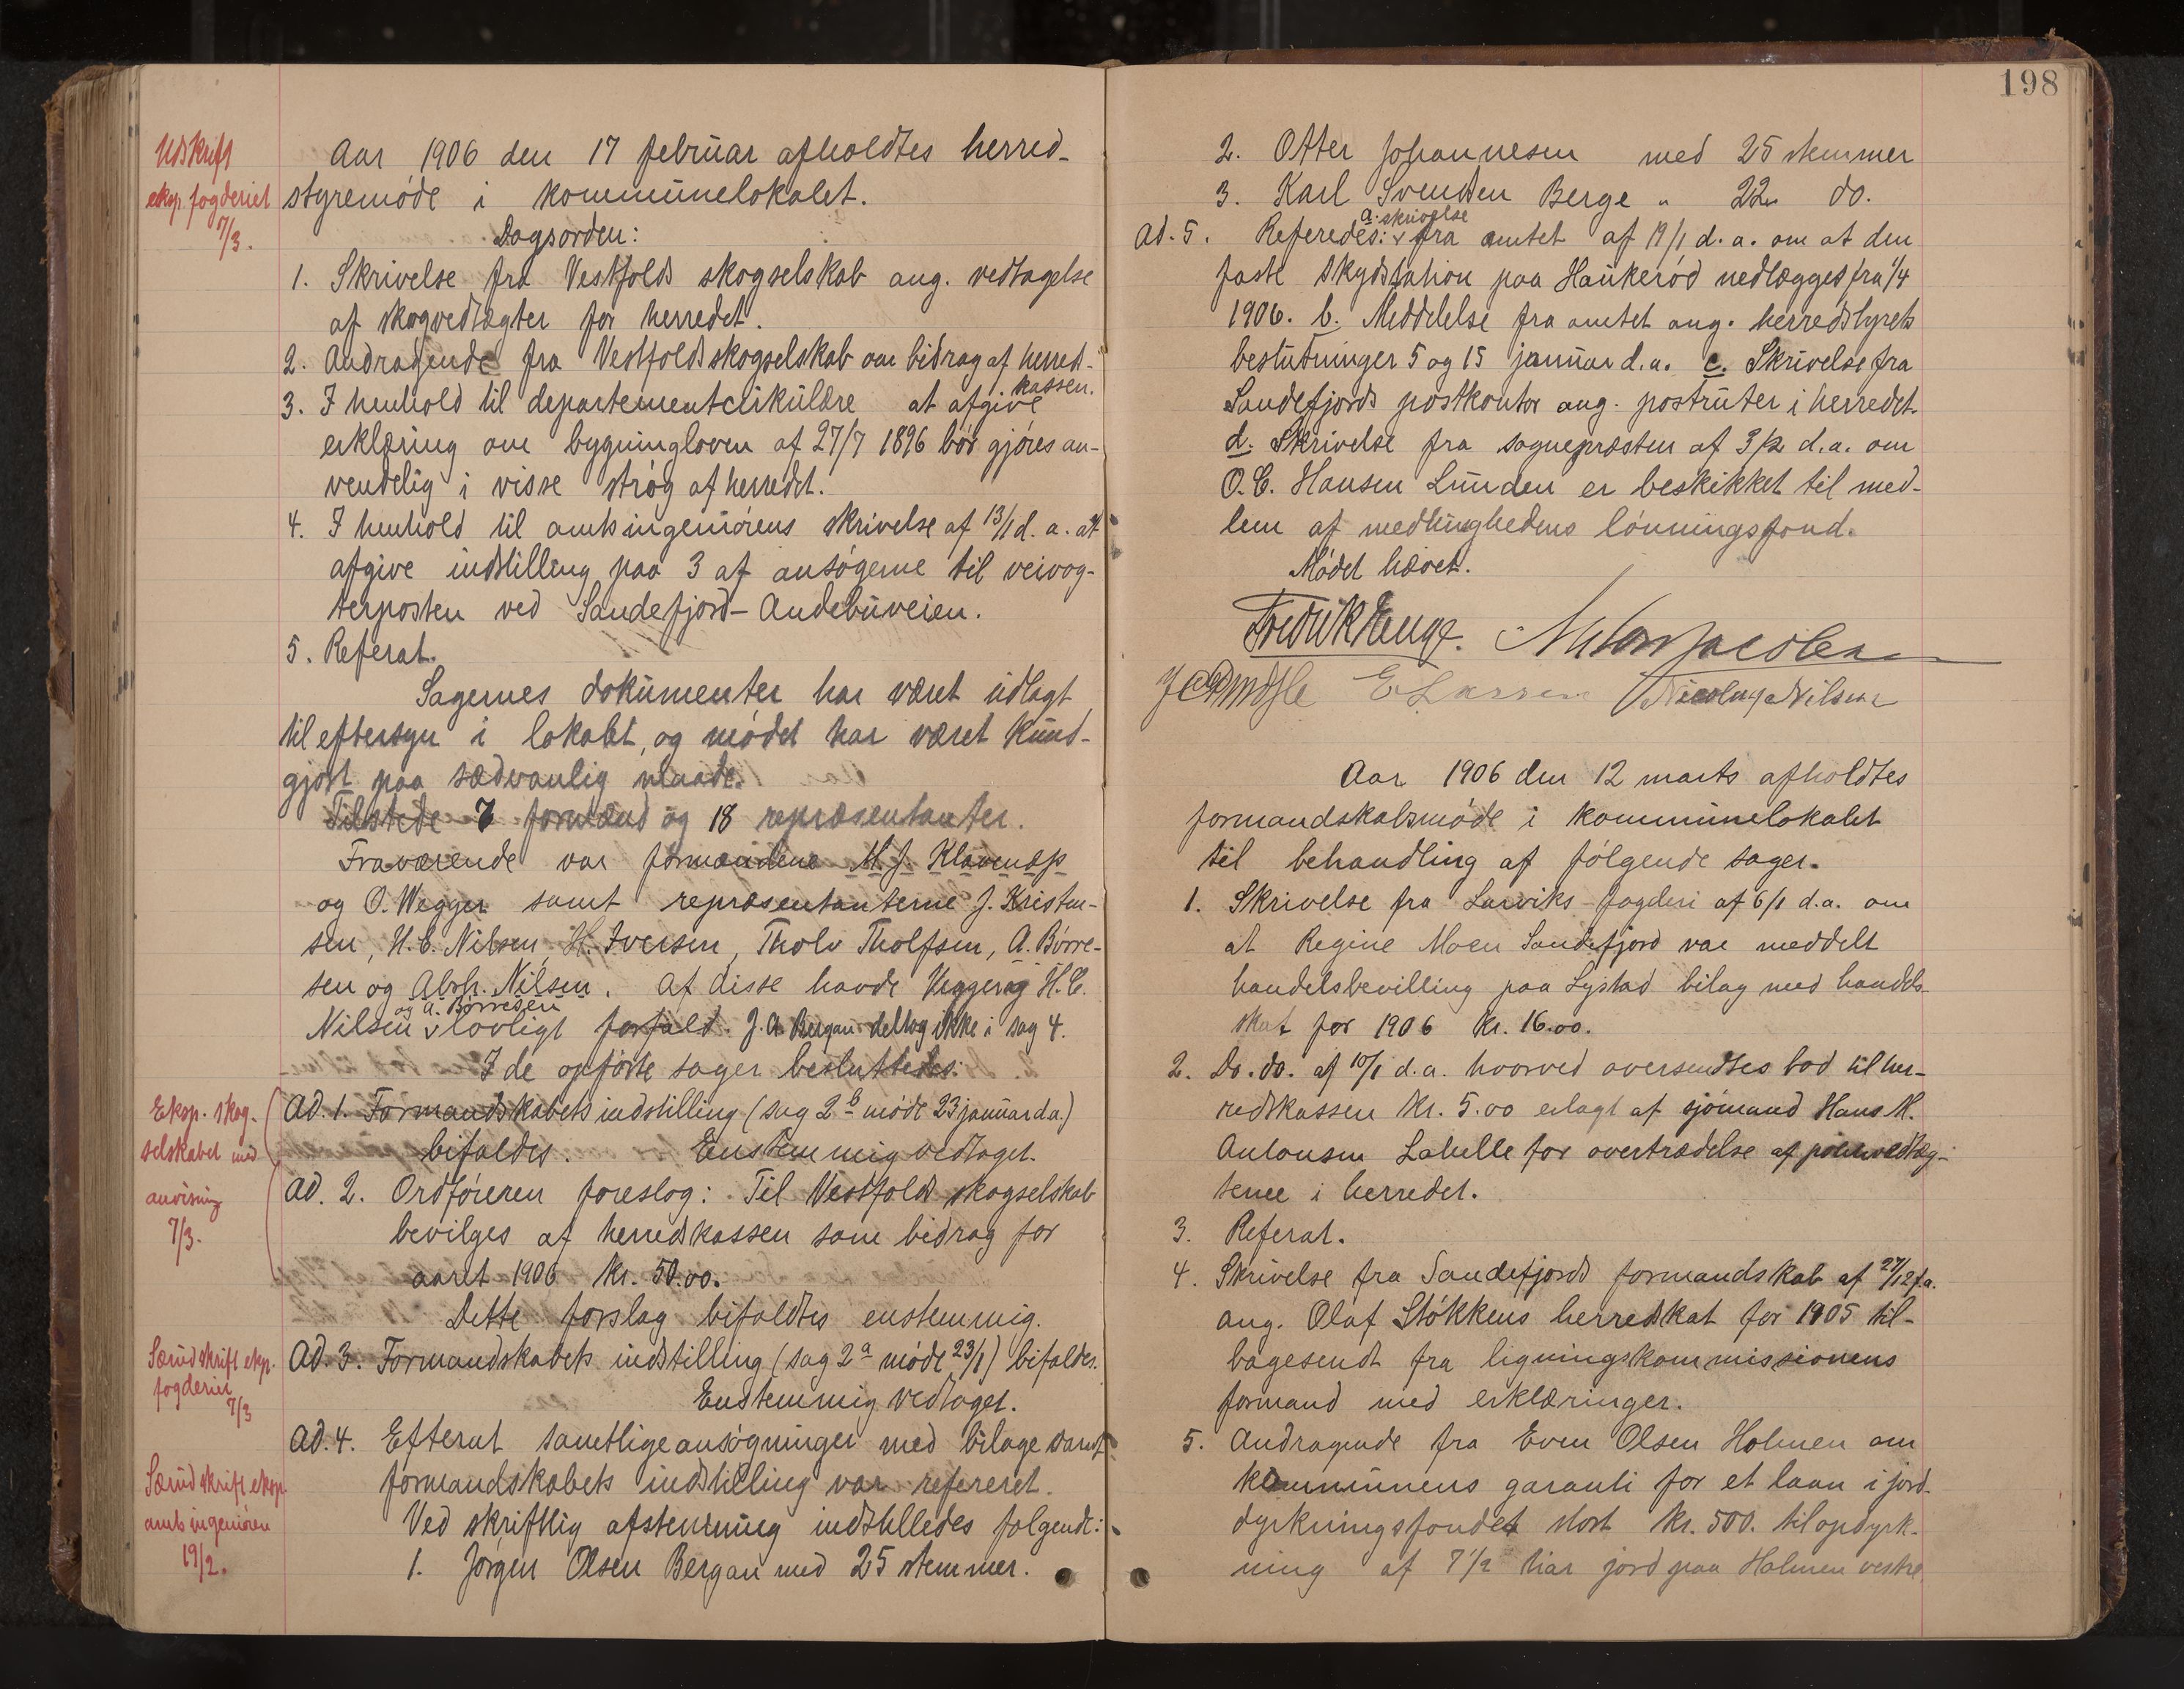 198
Udskrift
eksp. fogderiet
7/3.
Aar 1906 den 17 februar afholdtes herred-
styremöde i kommunelokalet.
Dagsorden:
1. Skrivelse fra Vestfolds skogselskab ang. vedtagelse
af skogvedtægter for herredet.
2. Andragende fra Vestfolds skogselskab om bidrag af herred-
kassen.
3. I henhold til departementcirkulære at afgive
erklæring om bygningloven af 27/7 1896 bör gjöres an-
vendelig i visse strög af herredet.
4. I henhold til amtsingeniörens skrivelse af 13/1 d. a. at
afgive indstilling paa 3 af ansögerne til veivog-
terposten ved Sandefjord-Andebuveien.
5. Referat.
Sagernes dokumenter har været udlagt
til eftersyn i lokalet, og mödet har været kund-
gjort paa sædvanlig maade.
Tilstede 7 formænd og 18 repræsentanter.
Fraværende var formændene M. J. Klavenæs
og O. Wegger samt repræsentanterne J. Kristen-
sen, H. C. Nilsen, H. Iversen, Tholv Tholfsen, A. Börre-
sen og Abrh. Nilsen. Af disse havde Vegger og H. C.
og A. Börresen
Nilsen lovligt forfald. J. A. Bergan deltog ikke i sag 4.
I de opförte sager besluttedes:
Eksp. skog-
selskabet med
anvisning
7/3.
Ad. 1. Formandskabets indstilling (sag 2b möde 23 januar d.a.)
bifaldes. Enstemmig vedtaget.
Ad. 2. Ordföreren foreslog: Til Vestfolds skogselskab
bevilges af herredskassen som bidrag for
aaret 1906 kr. 50.00.
Dette forslag bifaldtes enstemmig.
Særudskrift eksp.
fogderiet
7/3
Ad. 3. Formandskabets indstilling (sag 2a möde 23/1) bifaldes.
Enstemmig vedtaget.
Ad. 4. Efterat samtlige ansögninger med bilage samt
formandskabets indstilling var refereret.
Særudskrift eksp.
amtsingeniören
19/2.
Ved skriftlig afstemning indstilledes fölgende:
1. Jörgen Olsen Bergan med 25 stemmer.
2. Otter Johannesen med 25 stemmer
3. Karl Svendsen Berge " 22 do.
a. skrivelse
Ad. 5. Referedes: fra amtet af 19/1 d. a. om at den
faste skydsstation paa Haukeröd nedlægges fra 1/4
1906. b. Meddelelse fra amtet ang. herredstyrets
beslutninger 5 og 15 januar d. a. c. Skrivelse fra
Sandefjords postkontor ang. postruter i herredet.
d. Skrivelse fra sognepræsten af 3/2 d. a. om
O. C. Hansen Lunden er beskikket til med-
lem af medlinghedens lönningsfond.
Mödet hævet.
Fredrik Enge. Anton Jacobsen
E Larsen Nicolay Nilsen
Aar 1906 den 12 marts afholdtes
formandskabsmöde i kommunelokalet
til behandling af fölgende sager.
1. Skrivelse fra Larviks fogderi af 6/1 d. a. om
at Regine Moen Sandefjord var meddelt
handelsbevilling paa Lystad bilag med handels-
skat for 1906 kr. 16.00.
2. Do. do. af 10/1 d. a. hvorved oversendtes bod til her-
redskassen kr. 5.00 erlagt af sjömand Hans M.
Antonsen Lahelle for overtrædelse af politivedtæg-
terne i herredet.
3. Referat.
4. Skrivelse fra Sandefjords formandskab af 27/12 f.a.
ang. Olaf Stökkens herredskat for 1905 til-
bagesendt fra ligningskommissionens
formand med erklæringer.
5. Andragende fra Even Olsen Holmen om
kommunens garanti for et laan i jord-
dyrkningsfondet stort kr. 500. til opdyrk-
ning af 7 1/2 har jord paa Holmen vestre